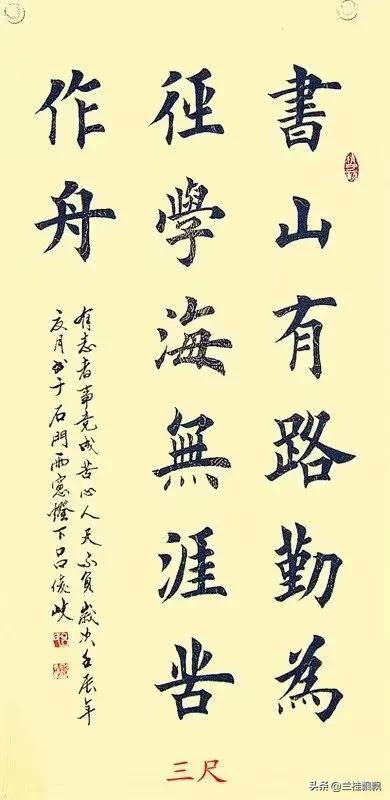 書山有路勤為
徑學海無涯苦
作舟
有志者事竟成苦心人天不負歲次壬辰年
夏月书于石門雨窻燈下
三尺
头条 @兰桂飘飘